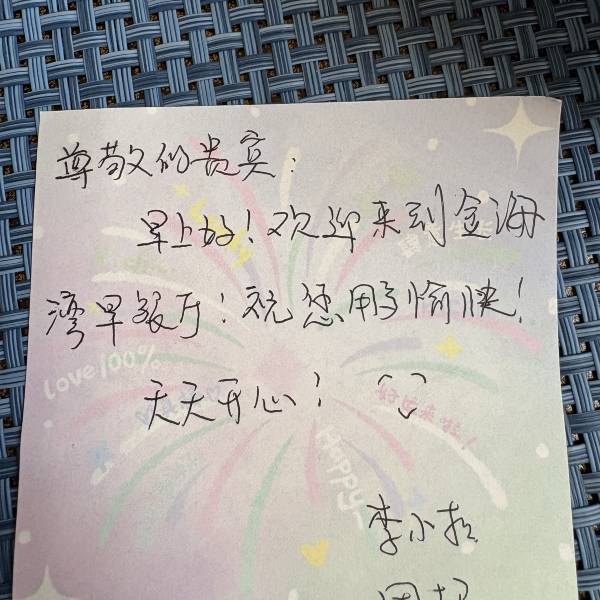 尊敬的贵宾：
早上好！欢迎来到金海
湾早餐厅！祝您用餐愉快！
天天开心！
love 100%
好运来啦！
Happy~
李小